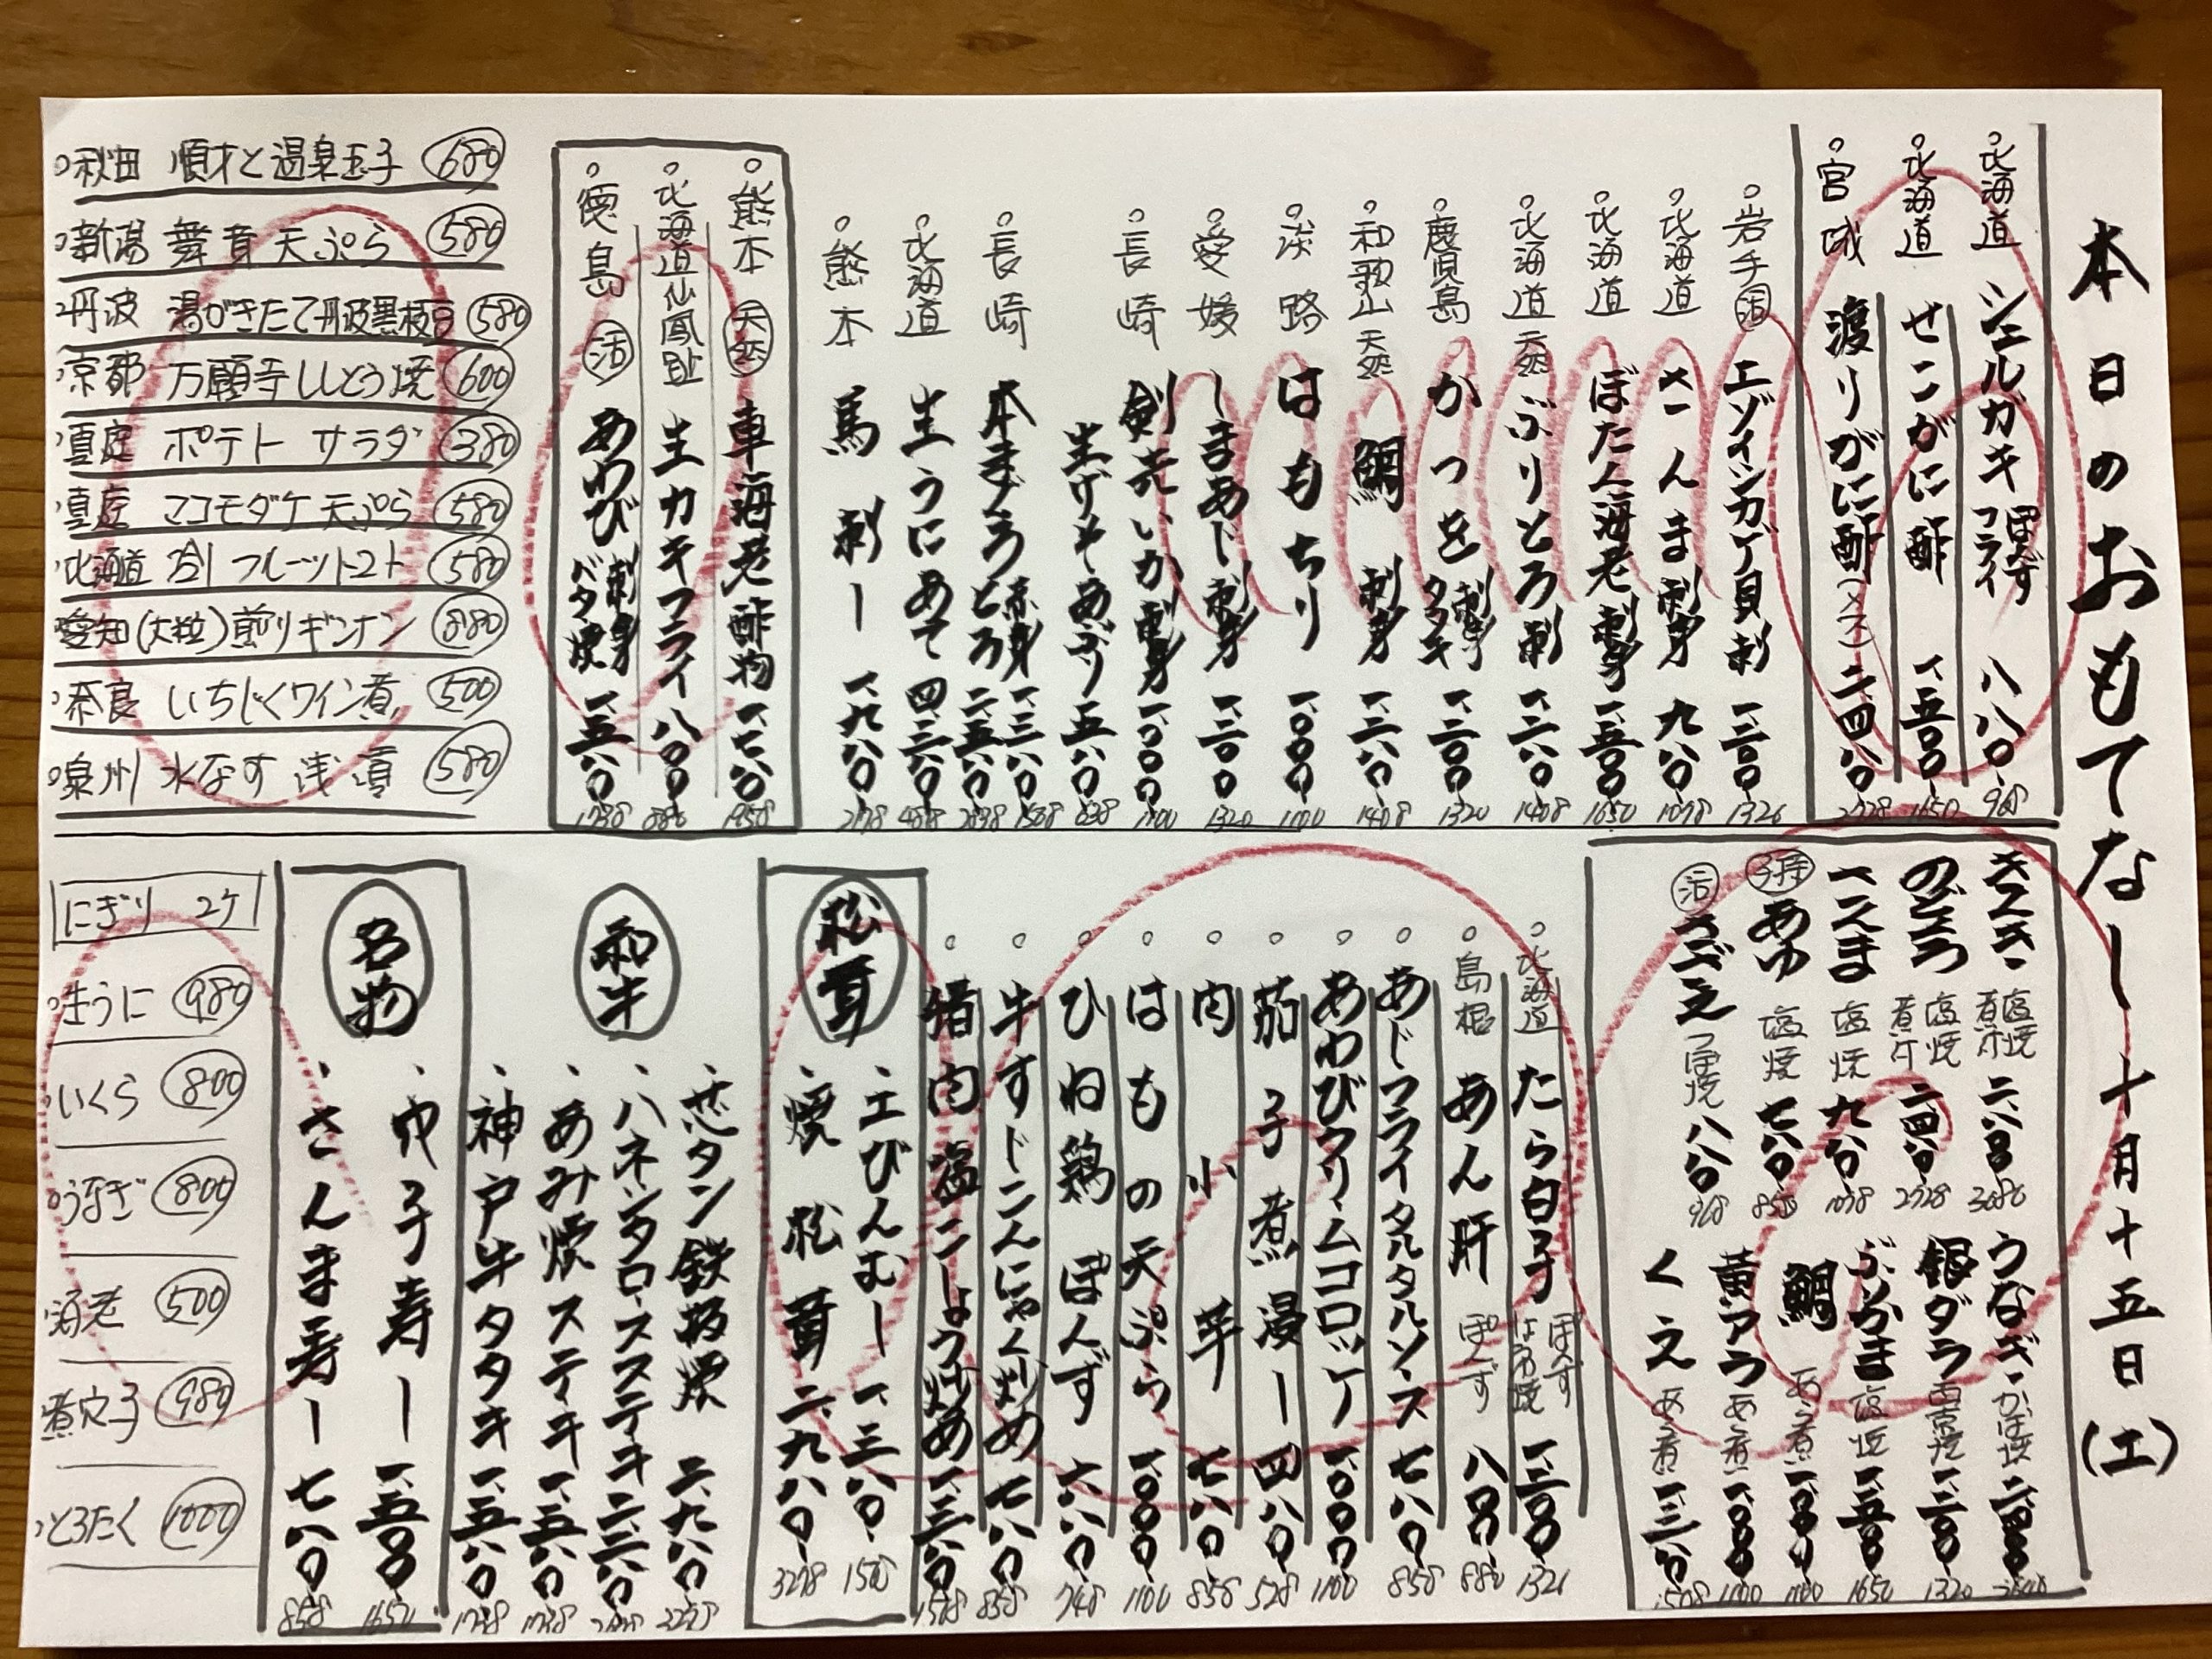 本日のおもてなし 十月十五日(土)
北海道 シェルガキ ぽんず フライ 八八〇 968
北海道 せこがに酢 一、五〇〇 1650
宮城 渡りがに酢(メス) 二、四八〇 2728
岩手 活 エゾイシカゲ貝刺 一、二〇〇 1320
北海道 さんま刺身 九八〇 1078
北海道 ぼたん海老刺身 一、五〇〇 1650
北海道 天然 ぶりとろ刺 一、二八〇 1408
鹿児島 かつを 刺身 タタキ 一、二〇〇 1320
和歌山 天然 鯛 刺身 一、二八〇 1408
淡路 はもちり 一、〇〇〇 1100
愛媛 しまあじ刺身 一、二〇〇 1320
長崎 剣先いか刺身 一、〇〇〇 1100
生げそあぶり 五八〇 638
長崎 本まぐろ 赤身 一、三八〇 1518
とろ 二、五八〇 2838
北海道 生うにあて 四、三八〇 4818
熊本 馬刺し 一、九八〇 2178
熊本 天然 車海老酢物 一、七八〇 1958
北海道仙鳳趾 生カキフライ 八〇〇 880
徳島 活 あわび 刺身 バタ焼 一、五八〇 1738
秋田 順才と温泉玉子 680
新潟 舞茸天ぷら 580
丹波 湯がきたて丹波黒枝豆 580
京都 万願寺ししとう焼 600
真庭 ポテトサラダ 380
真庭 マコモダケ天ぷら 580
北海道 冷しフルーツトマト 580
愛知(大粒)煎りギンナン 880
奈良 いちじくワイン煮 500
泉州 水なす浅漬 580
きんき 塩焼 煮汁 二、八〇〇 3080
のどぐろ 塩焼 煮汁 二、四八〇 2728
塩焼 九八〇 1078
子持 あゆ 塩焼 七八〇 858
活 さざえ つぼ焼 八八〇 968
うなぎ かば焼
銀ダラ 西京焼 一、二〇〇 1320
ぶりかま 塩焼 一、五〇〇 1650
鯛 あら煮 一、〇〇〇 1100
黄アラ あら煮 一、〇〇〇 1100
くえ あら煮
北海道 たら白子 ぽんず ほう葉焼 一、二〇〇
島根 あん肝 ぽんず 八〇〇 880
あじフライタルタルソース 七八〇 858
あわびクリームコロッケ 一、〇〇〇 1100
茄子煮浸し 四八〇 528
肉小芋 七八〇 858
はもの天ぷら 一、〇〇〇 1100
ひね鶏ぽんず 六八〇 748
牛すじこんにゃく炒め 七八〇 858
猪肉塩こしょう炒め 一、三八〇 1518
松茸
土びんむし 一、三八〇
焼松茸 二、九八〇 3278
和牛
芯タン鉄板焼
ハネシタロースステキ
あみ焼ステーキ 一、五八〇 1738
神戸牛タタキ 一、五八〇 1738
名物
巾子寿し 一、五〇〇 1650
さんま寿し 七八〇 858
にぎり 2ケ
生うに 980
いくら 800
うなぎ 800
海老 500
煮穴子 980
とろたく 1000